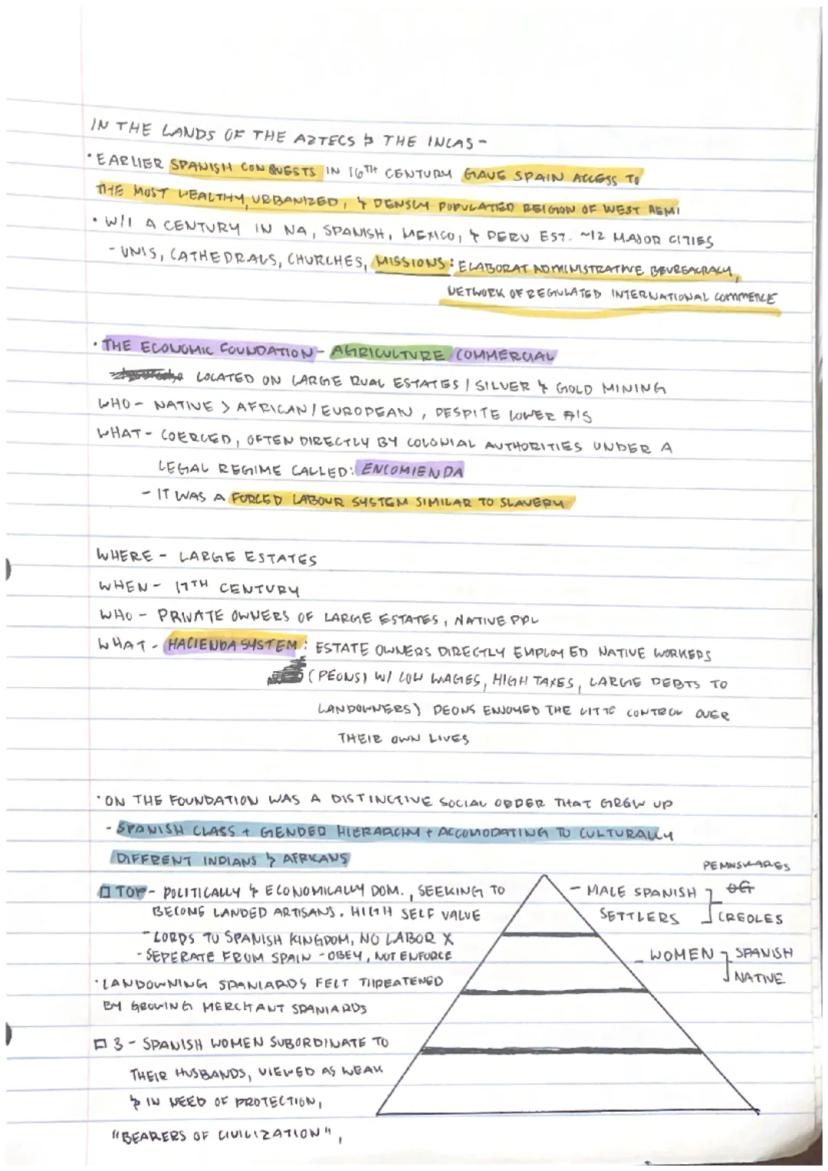 IN THE LANDS OF THE AZTECS & THE INCAS -
· EARLIER SPANISH CONQUESTS IN 16TH CENTURY GAVE SPAIN ACCESS TO
THE MOST WEALTHY, URBANIZED, & DENSLY POPULATED REIGION OF WEST HEMI
· W/I A CENTURY IN NA, SPANISH, MEXICO, & PERU EST. ~12 MAJOR CITIES
- UNIS, CATHEDRALS, CHURCHES, MISSIONS: ELABORAT ADMINISTRATIVE BEUREACRACY,
NETWORK OF REGULATED INTERNATIONAL COMMERCE
· THE ECONOMIC FOUNDATION - AGRICULTURE COMMERCIAL
LOCATED ON LARGE RUAL ESTATES / SILVER & GOLD MINING
WHO - NATIVE > AFRICAN / EUROPEAN, DESPITE LOWER #'S
WHAT - COERCED, OFTEN DIRECTLY BY COLONIAL AUTHORITIES UNDER A
LEGAL REGIME CALLED: ENCOMIENDA
- IT WAS A FORCED LABOUR SYSTEM SIMILAR TO SLAVERY
WHERE - LARGE ESTATES
WHEN - 17TH CENTURY
WHO - PRIVATE OWNERS OF LARGE ESTATES, NATIVE PPL
WHAT - HACIENDA SYSTEM: ESTATE OWNERS DIRECTLY EMPLOYED NATIVE WORKERS
(PEONS) W/ LOW WAGES, HIGH TAXES, LARGE DEBTS TO
LANDOWNERS) PEONS ENJOYED THE CONTROL OVER
THEIR OWN LIVES
· ON THE FOUNDATION WAS A DISTINCTIVE SOCIAL ORDER THAT GREW UP
- SPANISH CLASS + GENDED HIERARCHY + ACCOMODATING TO CULTURALLY
DIFFRENT INDIANS & AFRICANS
TOP - POLITICALLY & ECONOMICALLY DOM., SEEKING TO
BECOME LANDED ARTISANS. HIGH SELF VALUE
- LORDS TO SPANISH KINGDOM, NO LABOR X
- SEPERATE FROM SPAIN - OBEY, NOT ENFORCE
· LANDOWNING SPANIARDS FELT THREATENED
BY GROWING MERCHANT SPANIARDS
3 - SPANISH WOMEN SUBORDINATE TO
THEIR HUSBANDS, VIEWED AS WEAK
& IN NEED OF PROTECTION,
"BEARERS OF CIVILIZATION",
- MALE SPANISH
SETTLERS
OG
CREOLES
- WOMEN
SPANISH
NATIVE